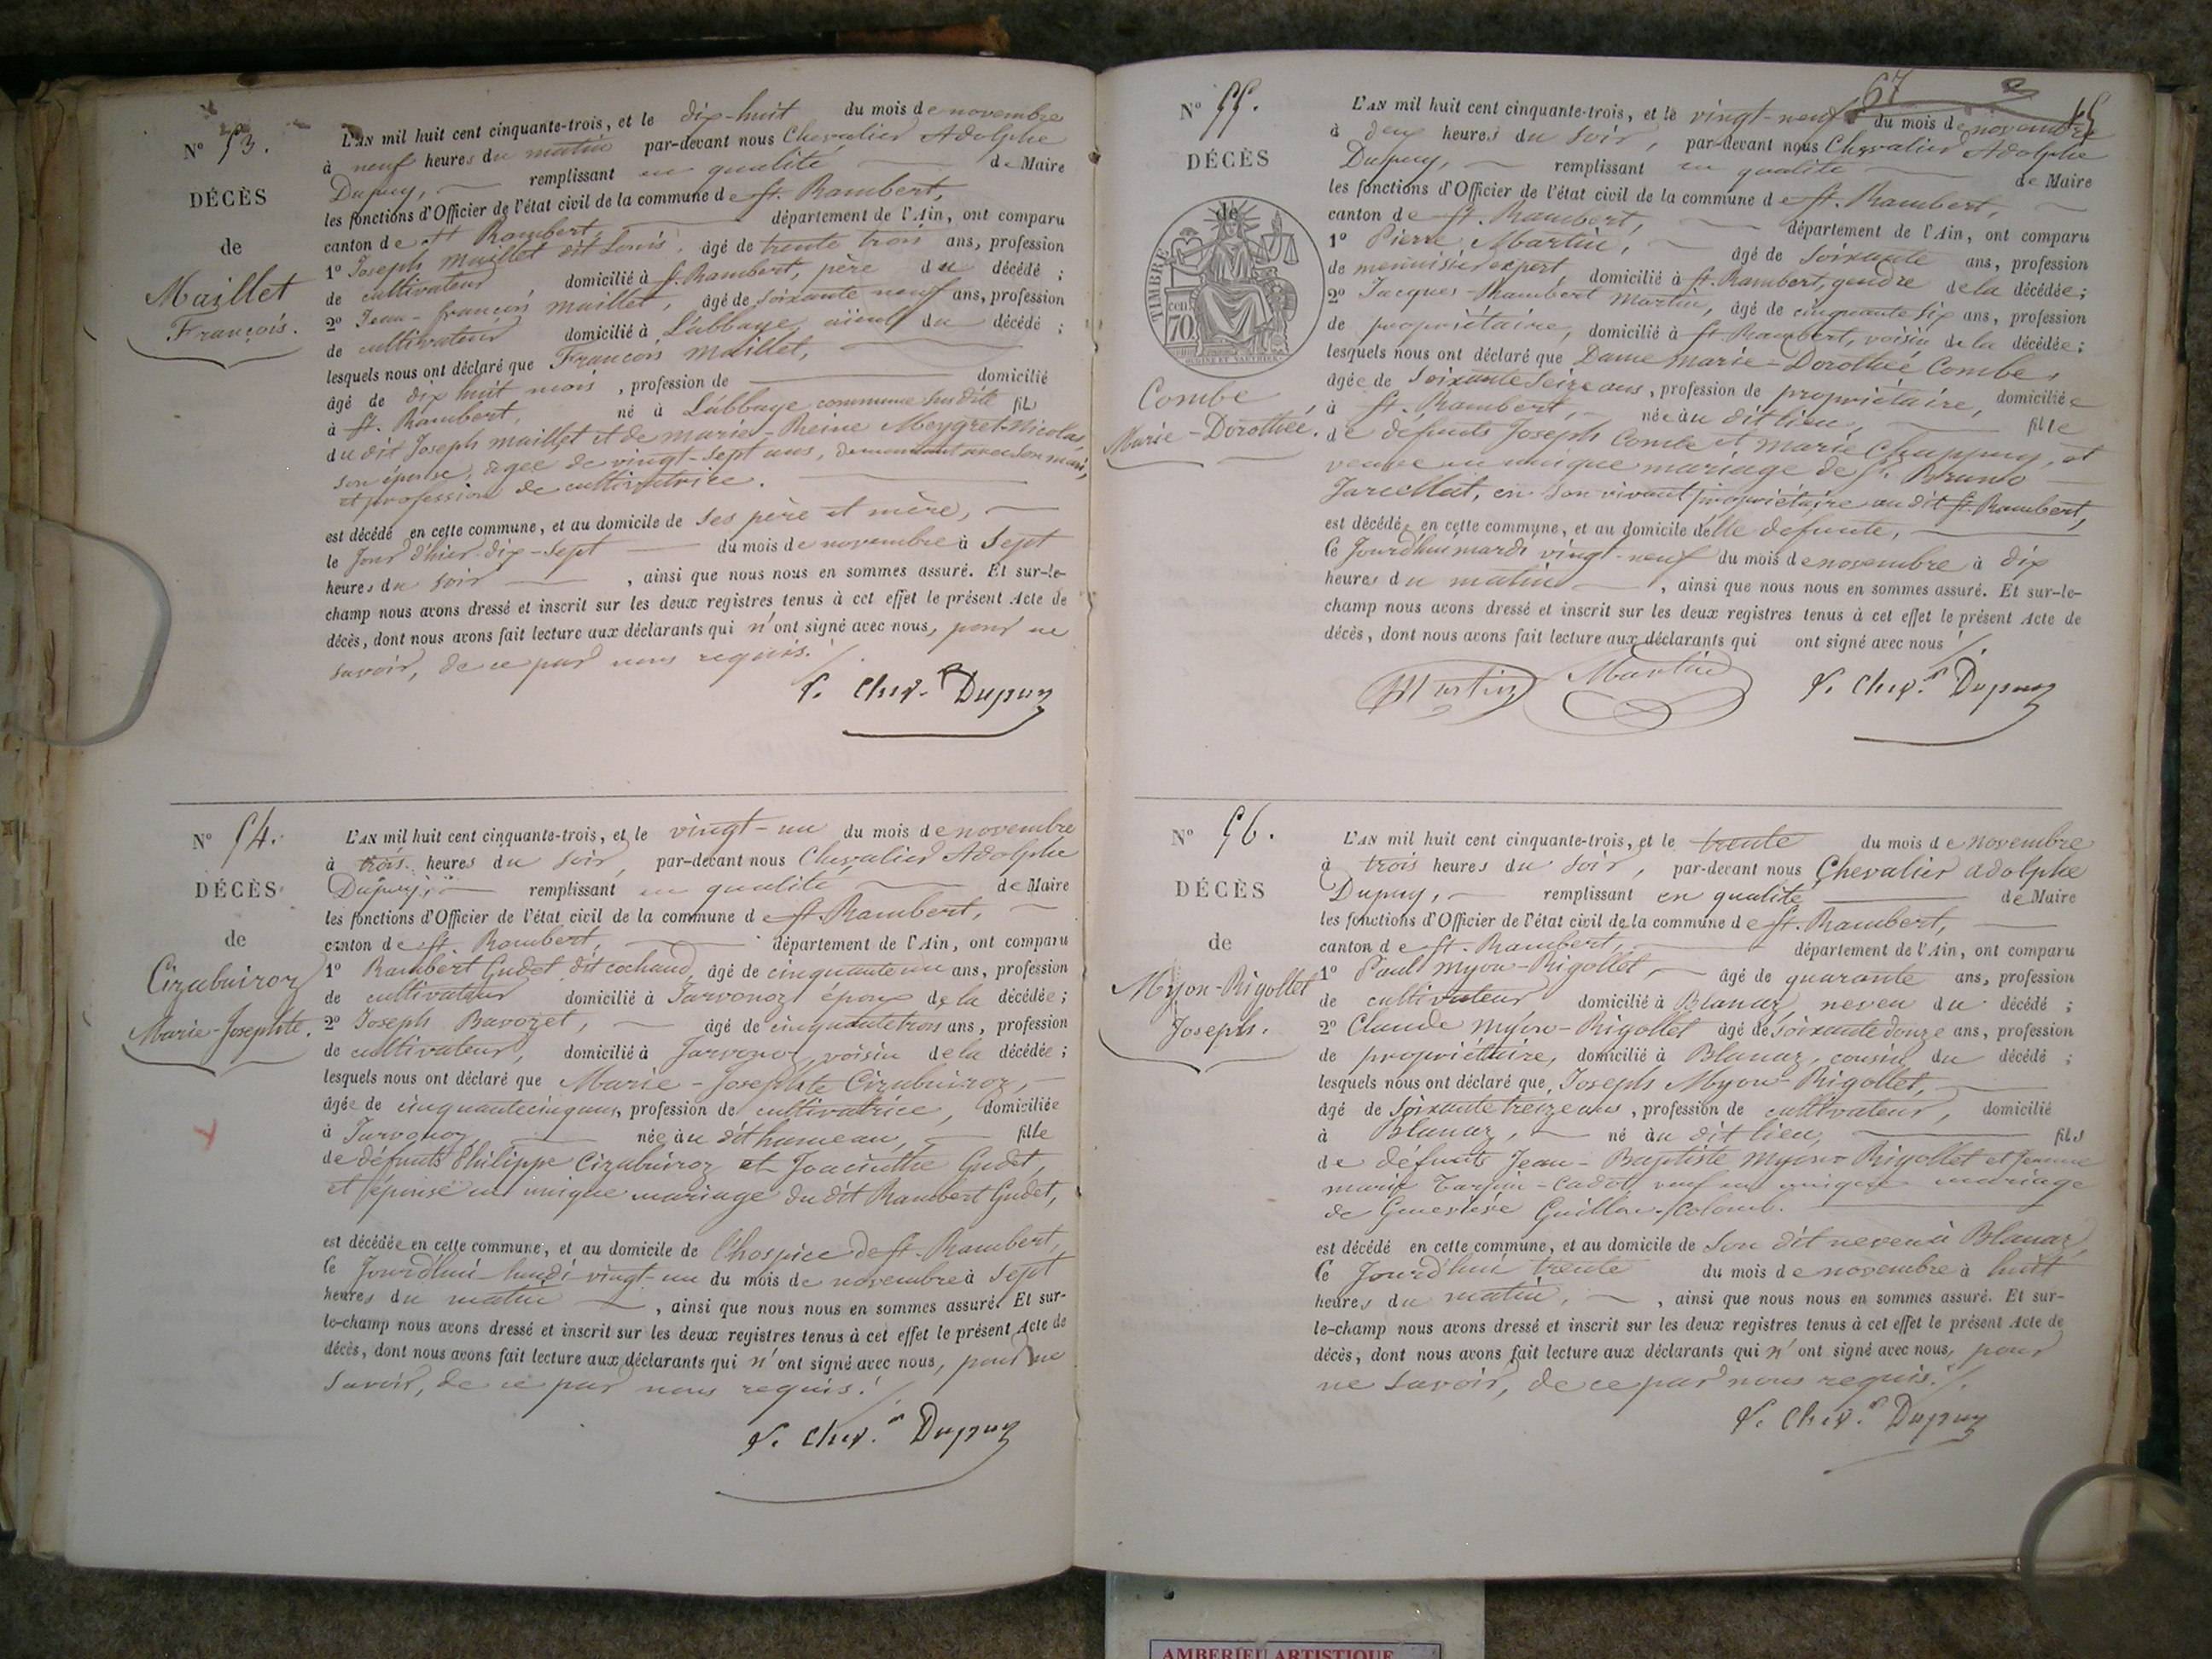 N° 53.
DÉCÈS
de
Maillet
François.
L'AN mil huit cent cinquante-trois, et le dix-huit du mois de novembre
à neuf heures du matin par-devant nous Chevalier Adolphe
Dupuy, remplissant en qualité de Maire
les fonctions d'Officier de l'état civil de la commune de St. Rambert,
canton de St Rambert, département de l'Ain, ont comparu
1° Joseph Maillet dit Louis. âgé de trente trois ans, profession
de cultivateur domicilié à St. Rambert, père du décédé ;
2° Jean-françois Maillet, âgé de soixante neuf ans, profession
de cultivateur domicilié à L'abbaye, aïeul du décédé ;
lesquels nous ont déclaré que François Maillet,
âgé de dix huit mois , profession de domicilié
à St. Rambert, né à L'abbaye commune susdite fils
du dit Joseph Maillet et de Marie-Reine Meygret-Nicolas,
son épouse, agée de vingt-sept ans, demeurant avec son mari,
et profession de cultivatrice.
est décédé en cette commune, et au domicile de ses père et mère,
le Jour d'hier dix-sept du mois de novembre à sept
heures du soir , ainsi que nous nous en sommes assuré. Et sur-le-
champ nous avons dressé et inscrit sur les deux registres tenus à cet effet le présent Acte de
décès, dont nous avons fait lecture aux déclarants qui n'ont signé avec nous, pour ne
savoir, de ce par nous requis.
Chev.r Dupuy
N° 54.
DÉCÈS
de
Cizabuiroz
Marie-Josephte.
L'AN mil huit cent cinquante-trois, et le vingt-un du mois de novembre
à trois heures du soir, par-devant nous Chevalier Adolphe
Dupuy, remplissant en qualité de Maire
les fonctions d'Officier de l'état civil de la commune de St. Rambert,
canton de St. Rambert, département de l'Ain, ont comparu
1° Rambert Gudet dit cochaud, âgé de cinquante un ans, profession
de cultivateur domicilié à Jarvonoz époux de la décédée ;
2° Joseph Bavozet, âgé de cinquante trois ans, profession
de cultivateur, domicilié à Jarvonoz, voisin de la décédée ;
lesquels nous ont déclaré que Marie-Josephte Cizabuiroz,
âgée de cinquante cinq ans, profession de cultivatrice, domiciliée
à Jarvonoz née au dit hameau, fille
de défunts Philippe Cizabuiroz et Joacinthe Gudet,
et épouse en unique mariage du dit Rambert Gudet,
est décédée en cette commune, et au domicile de l'hospice de St. Rambert,
ce Jourd'hui lundi vingt-un du mois de novembre à sept
heures du matin , ainsi que nous nous en sommes assuré. Et sur-
le-champ nous avons dressé et inscrit sur les deux registres tenus à cet effet le présent Acte de
décès, dont nous avons fait lecture aux déclarants qui n'ont signé avec nous, pour ne
savoir, de ce par nous requis.
Chev.r Dupuy
67
N° 55.
DÉCÈS
de
TIMBRE
cen
70
Combe
Marie-Dorothée.
L'AN mil huit cent cinquante-trois, et le vingt-neuf du mois de novembre
à deux heures du soir, par-devant nous Chevalier Adolphe
Dupuy, remplissant en qualité de Maire
les fonctions d'Officier de l'état civil de la commune de St. Rambert,
canton de St. Rambert, département de l'Ain, ont comparu
1° Pierre Martin, âgé de soixante ans, profession
de menuisier expert, domicilié à St. Rambert, gendre de la décédée ;
2° Jacques-Rambert Martin, âgé de cinquante six ans, profession
de propriétaire, domicilié à St Rambert, voisin de la décédée ;
lesquels nous ont déclaré que Dame Marie-Dorothée Combe,
âgée de soixante seize ans, profession de propriétaire, domiciliée
à St. Rambert, née au dit lieu, fille
de défunts Joseph Combe et Marie Chappuy, et
veuve en unique mariage de Sr. Bruno
Jarcellat, en son vivant propriétaire au dit St. Rambert,
est décédée en cette commune, et au domicile d'elle défunte,
ce Jourd'hui mardi vingt-neuf du mois de novembre à dix
heures du matin , ainsi que nous nous en sommes assuré. Et sur-le-
champ nous avons dressé et inscrit sur les deux registres tenus à cet effet le présent Acte de
décès, dont nous avons fait lecture aux déclarants qui ont signé avec nous
Martin Martin Chev.r Dupuy
N° 56.
DÉCÈS
de
Myon-Rigollet
Joseph.
L'AN mil huit cent cinquante-trois, et le trente du mois de novembre
à trois heures du soir, par-devant nous Chevalier Adolphe
Dupuy, remplissant en qualité de Maire
les fonctions d'Officier de l'état civil de la commune de St. Rambert,
canton de St. Rambert, département de l'Ain, ont comparu
1° Paul Myon-Rigollet, âgé de quarante ans, profession
de cultivateur domicilié à Blanaz, neveu du décédé ;
2° Claude Myon-Rigollet âgé de soixante douze ans, profession
de propriétaire, domicilié à Blanaz, cousin du décédé ;
lesquels nous ont déclaré que Joseph Myon-Rigollet,
âgé de soixante treize ans, profession de cultivateur, domicilié
à Blanaz, né au dit lieu, fils
de défunts Jean-Baptiste Myon-Rigollet et Jeanne
marie Tarpin-Cadot, veuf en unique mariage
de Geneviève Guillon-Colomb.
est décédé en cette commune, et au domicile de son dit neveu à Blanaz,
ce Jourd'hui trente du mois de novembre à huit
heures du matin, , ainsi que nous nous en sommes assuré. Et sur-
le-champ nous avons dressé et inscrit sur les deux registres tenus à cet effet le présent Acte de
décès, dont nous avons fait lecture aux déclarants qui n'ont signé avec nous, pour
ne savoir, de ce par nous requis.
Chev.r Dupuy
AMBERIEU ARTISTIQUE